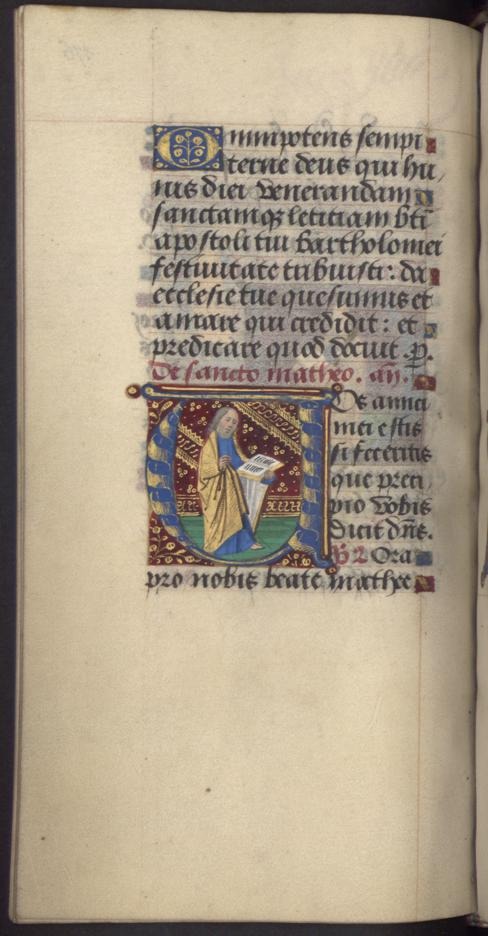 Omnipotens sempi
terne deus qui hu
ius diei venerandam
sanctamqꝫ letitiam bti
apostoli tui Bartholomei
festiuitate tribuisti: da
ecclesie tue quesumus et
amare qui credidit: et
predicare quod docuit. p.
De sancto matheo. añ.
Vos amici
mei estis
si feceritis
que preci
pio vobis
dicit dñs.
Ora
pro nobis beate mathee